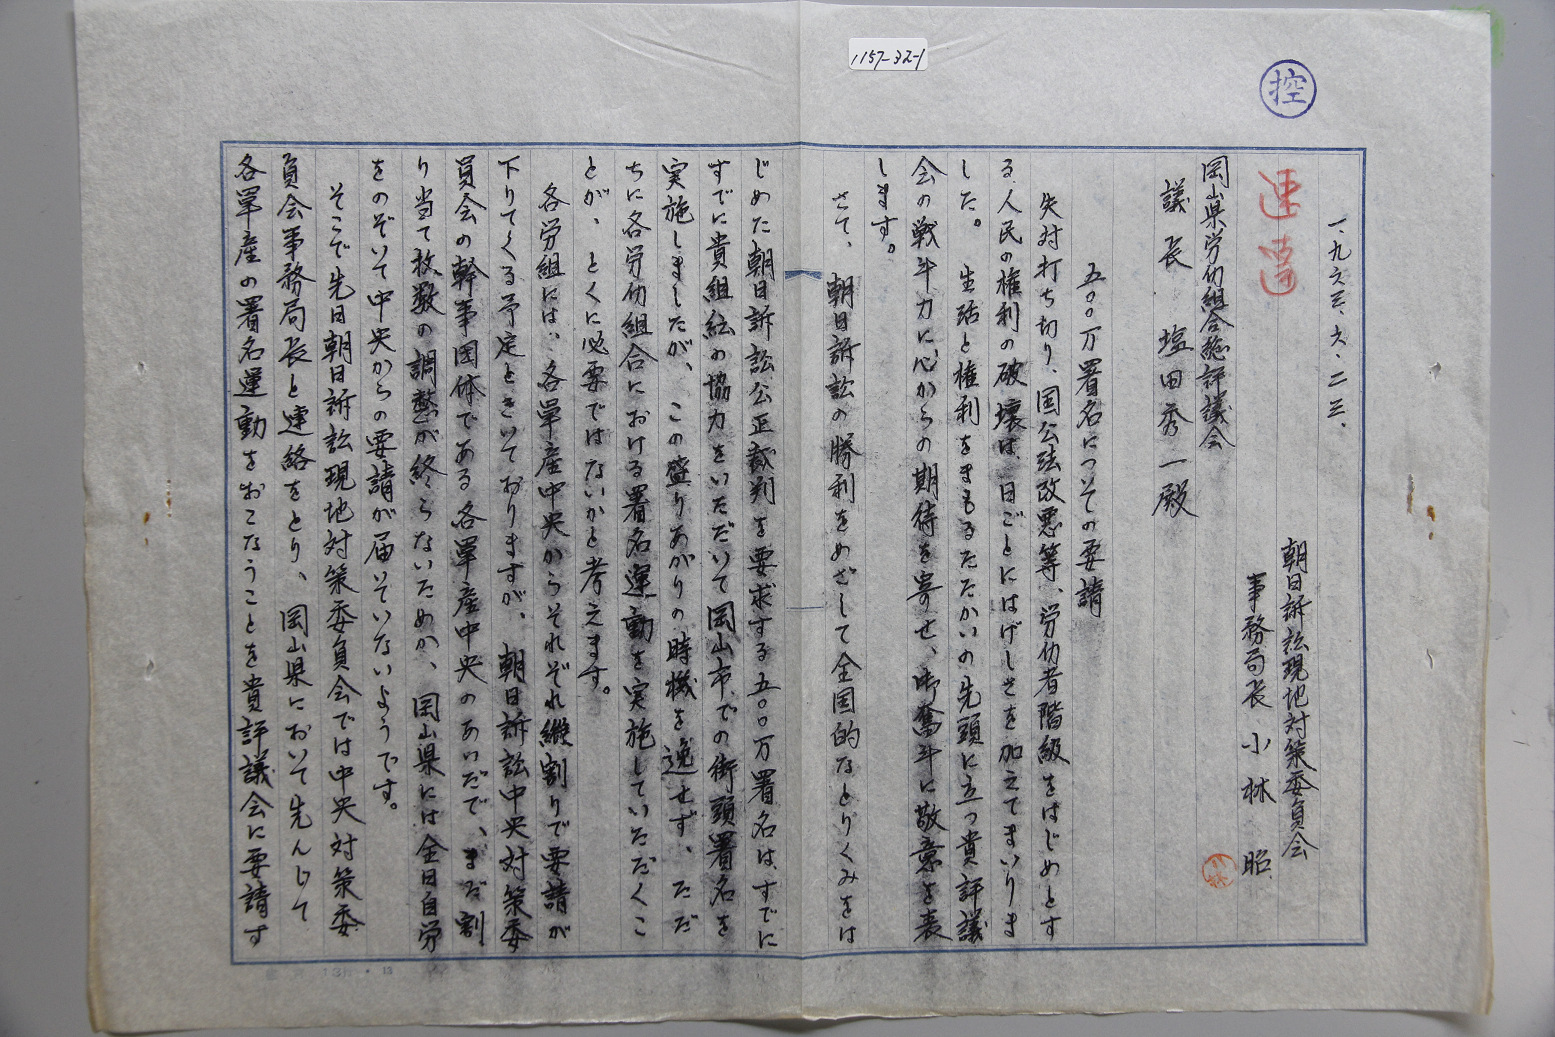 1157-32-1
控
一、九六三、六、二三、
朝日訴訟現地対策委員会
事務局長 小林 昭
小林
岡山県労仂組合総評議会
議長 塩田秀一殿
五〇〇万署名についての要請
失対打ち切り、国公法改悪等、労仂者階級をはじめとす
る人民の権利の破壊は一日ごとにはげしさを加えてまいりま
した。 生活と権利をまもるたたかいの先頭に立つ貴評議
会の戦斗力に心からの期待を寄せ、御奮斗に敬意を表
します。
さて、朝日訴訟の勝利をめざして全国的なとりくみをは
じめた朝日訴訟公正裁判を要求する五〇〇万署名は、すでに
すでに貴組織の協力をいただいて岡山市での街頭署名を
実施しましたが、この盛りあがりの時機を逸せず、ただ
ちに各労仂組合における署名運動を実施していただくこ
とが、とくに必要ではないかと考えます。
各労組には、各単産中央からそれぞれ縦割りで要請が
下りてくる予定ときいておりますが、朝日訴訟中央対策委
員会の幹事団体である各単産中央のあいだで、まだ割
り当て枚数の調整が終らないためか、岡山県には全日自労
をのぞいて中央からの要請が届いていないようです。
そこで先日朝日訴訟現地対策委員会では中央対策委
員会事務局長と連絡をとり、岡山県において先んじて
各単産の署名運動をおこなうことを貴評議会に要請す